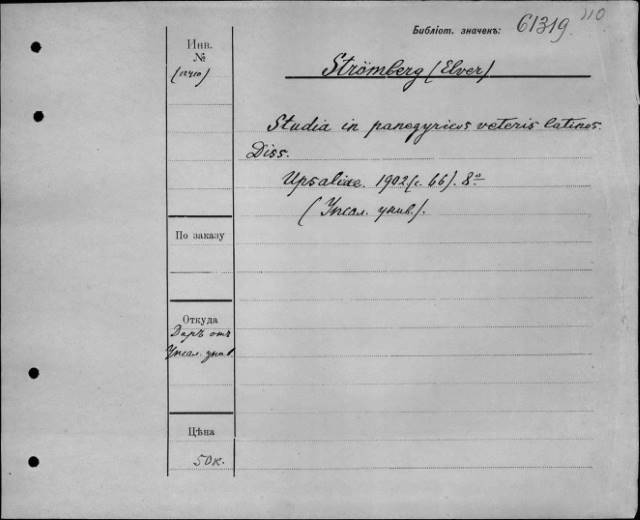 Библіот. значекъ: 61319 110
Инв.
№
Strömberg (Elver)
Studia in panegyricos veteris latinos.
Diss.
Upsaliae. 1902 (с. 66). 8º
(Упсал. унив.).
По заказу
Откуда
Даръ отъ
Упсал. унив.
Цѣна
50 к.